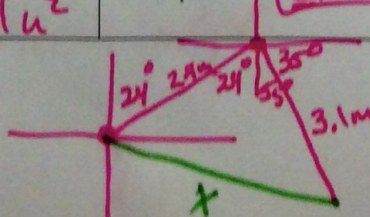 u²
24°
24°
35°
55°
3.1m
x